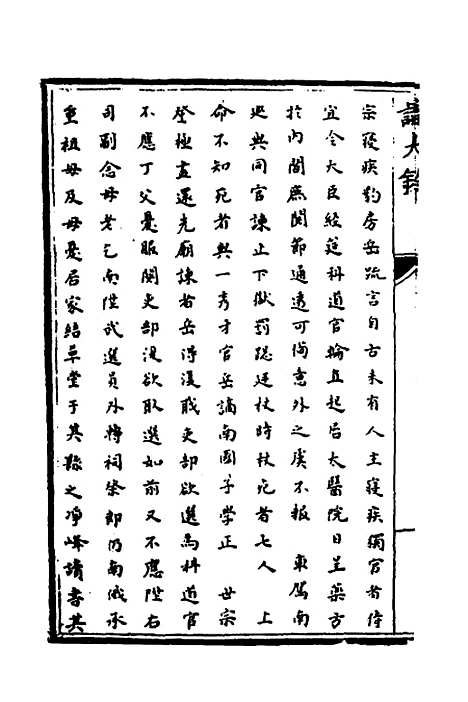 宗寢疾豹房岳疏言自古未有人主寢疾獨宦者侍
宜令大臣經筵科道官輪直起居太醫院日呈藥方
於內閣庶關節通透可備意外之虞不報　東駕南
廵與同官諫止下獄罰跽廷杖時杖死者七人　上
命不知死者與一秀才官岳謫南國子學正　世宗
登極直還先廟諫者岳得復職吏部欲選為科道官
不應丁父憂服闋吏部復欲取選如前又不應陞右
司副念母老乞南陞武選員外轉祠祭郎仍南俄承
重祖母及母憂居家結草堂于其縣之凈峰讀書其